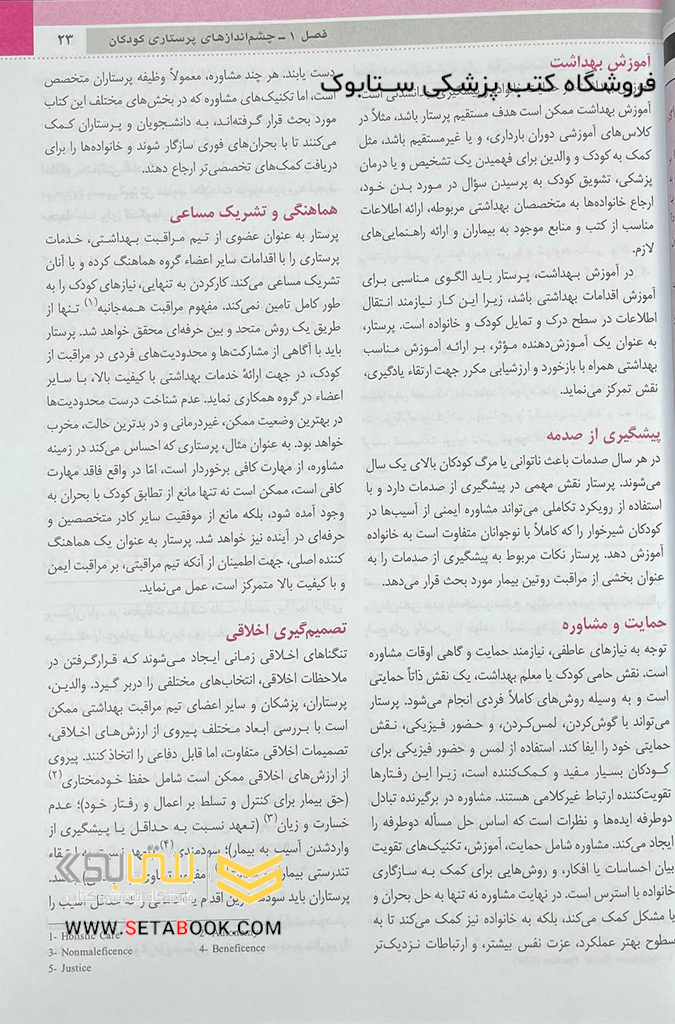 فصل ۱ ـ چشم‌اندازهای پرستاری کودکان
۲۳
آموزش بهداشت
فروشگاه کتب پزشکی ستابوک
آموزش بهداشت ممکن است هدف مستقیم پرستار باشد، مثلاً در
کلاس‌های آموزشی دوران بارداری، و یا غیرمستقیم باشد، مثل
کمک به کودک و والدین برای فهمیدن یک تشخیص و یا درمان
پزشکی، تشویق کودک به پرسیدن سؤال در مورد بدن خود،
ارجاع خانواده‌ها به متخصصان بهداشتی مربوطه، ارائه اطلاعات
مناسب از کتب و منابع موجود به بیماران و ارائه راهنمایی‌های
لازم.
در آموزش بهداشت، پرستار باید الگوی مناسبی برای
آموزش اقدامات بهداشتی باشد، زیرا این کار نیازمند انتقال
اطلاعات در سطح درک و تمایل کودک و خانواده است. پرستار،
به عنوان یک آموزش‌دهنده مؤثر، بر ارائه آموزش مناسب
بهداشتی همراه با بازخورد و ارزشیابی مکرر جهت ارتقاء یادگیری،
نقش تمرکز می‌نماید.
پیشگیری از صدمه
در هر سال صدمات باعث ناتوانی یا مرگ کودکان بالای یک سال
می‌شوند. پرستار نقش مهمی در پیشگیری از صدمات دارد و با
استفاده از رویکرد تکاملی می‌تواند مشاوره ایمنی از آسیب‌ها در
کودکان شیرخوار را که کاملاً با نوجوانان متفاوت است به خانواده
آموزش دهد. پرستار نکات مربوط به پیشگیری از صدمات را به
عنوان بخشی از مراقبت روتین بیمار مورد بحث قرار می‌دهد.
حمایت و مشاوره
توجه به نیازهای عاطفی، نیازمند حمایت و گاهی اوقات مشاوره
است. نقش حامی کودک یا معلم بهداشت، یک نقش ذاتاً حمایتی
است و به وسیله روش‌های کاملاً فردی انجام می‌شود. پرستار
می‌تواند با گوش‌کردن، لمس‌کردن، و حضور فیزیکی، نقش
حمایتی خود را ایفا کند. استفاده از لمس و حضور فیزیکی برای
کودکان بسیار مفید و کمک‌کننده است، زیرا این رفتارها
تقویت‌کننده ارتباط غیرکلامی هستند. مشاوره در برگیرنده تبادل
دوطرفه ایده‌ها و نظرات است که اساس حل مسأله دوطرفه را
ایجاد می‌کند. مشاوره شامل حمایت، آموزش، تکنیک‌های تقویت
بیان احساسات یا افکار، و روش‌هایی برای کمک به سازگاری
خانواده با استرس است. در نهایت مشاوره نه تنها به حل بحران و
یا مشکل کمک می‌کند، بلکه به خانواده نیز کمک می‌کند تا به
سطوح بهتر عملکرد، عزت نفس بیشتر، و ارتباطات نزدیک‌تر
دست یابند. هر چند مشاوره، معمولاً وظیفه پرستاران متخصص
است، اما تکنیک‌های مشاوره که در بخش‌های مختلف این کتاب
مورد بحث قرار گرفته‌اند، به دانشجویان و پرستاران کمک
می‌کنند تا با بحران‌های فوری سازگار شوند و خانواده‌ها را برای
دریافت کمک‌های تخصصی‌تر ارجاع دهند.
هماهنگی و تشریک مساعی
پرستار به عنوان عضوی از تیم مراقبت بهداشتی، خدمات
پرستاری را با اقدامات سایر اعضاء گروه هماهنگ کرده و با آنان
تشریک مساعی می‌کند. کارکردن به تنهایی، نیازهای کودک را به
طور کامل تامین نمی‌کند. مفهوم مراقبت همه‌جانبه(۱) تنها از
طریق یک روش متحد و بین حرفه‌ای محقق خواهد شد. پرستار
باید با آگاهی از مشارکت‌ها و محدودیت‌های فردی در مراقبت از
کودک، در جهت ارائهٔ خدمات بهداشتی با کیفیت بالا، با سایر
اعضاء در گروه همکاری نماید. عدم شناخت درست محدودیت‌ها
در بهترین وضعیت ممکن، غیردرمانی و در بدترین حالت، مخرب
خواهد بود. به عنوان مثال، پرستاری که احساس می‌کند در زمینه
مشاوره، از مهارت کافی برخوردار است، امّا در واقع فاقد مهارت
کافی است، ممکن است نه تنها مانع از تطابق کودک با بحران به
وجود آمده شود، بلکه مانع از موفقیت سایر کادر متخصصین و
حرفه‌ای در آینده نیز خواهد شد. پرستار به عنوان یک هماهنگ
کننده اصلی، جهت اطمینان از آنکه تیم مراقبتی، بر مراقبت ایمن
و با کیفیت بالا متمرکز است، عمل می‌نماید.
تصمیم‌گیری اخلاقی
تنگناهای اخلاقی زمانی ایجاد می‌شوند که قرارگرفتن در
ملاحظات اخلاقی، انتخاب‌های مختلفی را دربر گیرد. والدین،
پرستاران، پزشکان و سایر اعضای تیم مراقبت بهداشتی ممکن
است با بررسی ابعاد مختلف پیروی از ارزش‌های اخلاقی،
تصمیمات اخلاقی متفاوت، اما قابل دفاعی را اتخاذ کنند. پیروی
از ارزش‌های اخلاقی ممکن است شامل حفظ خودمختاری(۲)
(حق بیمار برای کنترل و تسلط بر اعمال و رفتار خود)؛ عدم
خسارت و زیان(۳) (تعهد نسبت به حداقل یا پیشگیری از
واردشدن آسیب به بیمار)؛ سودمندی(۴)
تندرستی بیمار
پرستاران باید
آسیب را
ستابوک
WWW.SETABOOK.COM
1- Holistic Care
2- Autonomy
3- Nonmaleficence
4- Beneficence
5- Justice